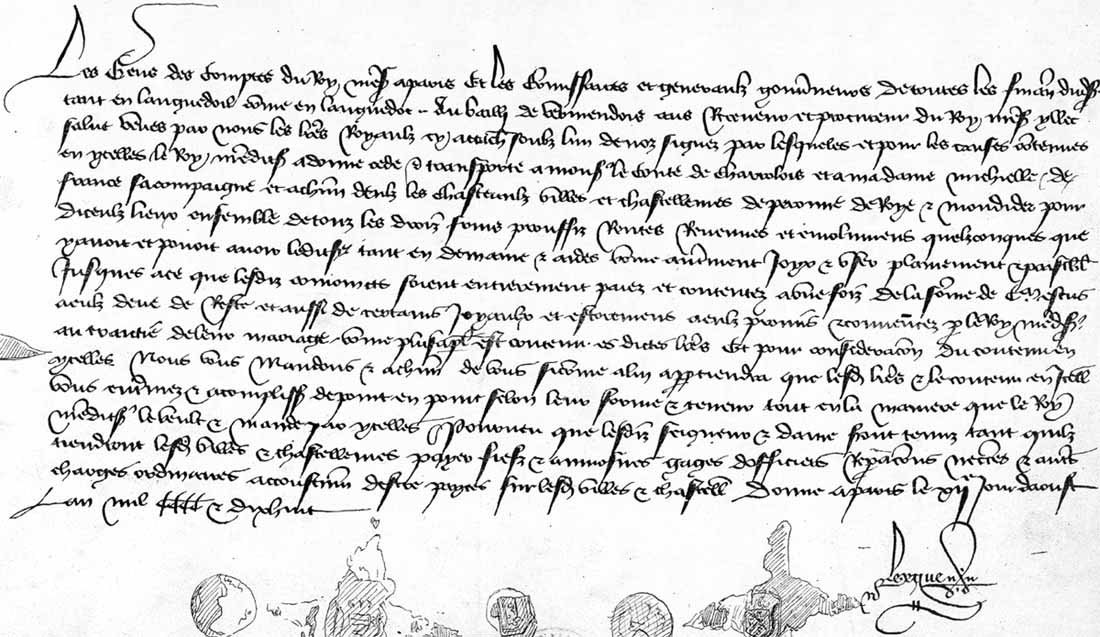 Les Gens des Comptes du Roy nostre sire a paris Et les Commissaires et generaulx gouverneurs de toutes les finances dudit
tant en languedoil comme en languedoc Au bailli de vermendois aux Receveur et procureur du Roy nostre sire illec
salut veues par nous les lettres Royaulx cy attach soubz lun de noz signez par lesqueles et pour les causes contenues
en ycelles le Roy a donne cede et transporte a mons le Conte de Charrolois et a madame michielle de
france sa compaigne et a chacun deulx les Chasteaulx villes et chastellenies de peronne de Roye et mondidier pour
diceulx lieux ensemble de touz les droiz fruis prouffiz Rentes Revenues et emolumens quelzconques que
y avoit et povoit avoir tant en demaine et aides comme autrement Joyr et user plainement et paisiblement
Jusques a ce que lesdiz conjoincts soient entierement paiez et contentez a une foiz de la somme de escus
a eulx deue de Reste et aussi de certains Joyaulx et estoremens a eulx promis et par le Roy
au traictie de leur mariage comme plus a plain est contenu es dictes lettres Et pour consideracion du contenu en
ycelles Nous vous Mandons et a chacun de vous si comme a lui appartiendra que lesdictes lettres et le contenu en Icelles
vous enterinez et acomplissez de point en point selon leur forme et teneur tout en la maniere que le Roy
le veult et mande par ycelles Pourveu que lesdiz seigneur et dame seront tenuz tant quilz
tiendront lesdictes villes et chastellenies paier fiefz et aumosnes gages dofficiers Reparacions necessaires et autres
charges ordinaires acoustumees destre paiees sur lesdictes villes et chastell Donne a paris le xij Jour daoust
Lan mil cccc et dixhuit